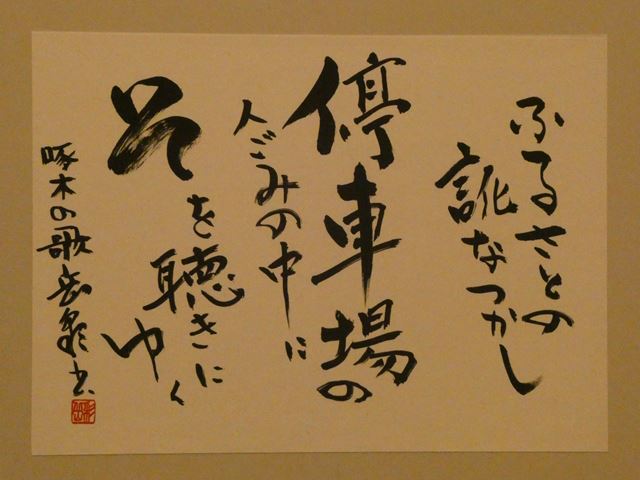 ふるさとの
訛なつかし
停車場の
人ごみの中に
そ
を聴きに
ゆく
啄木の歌